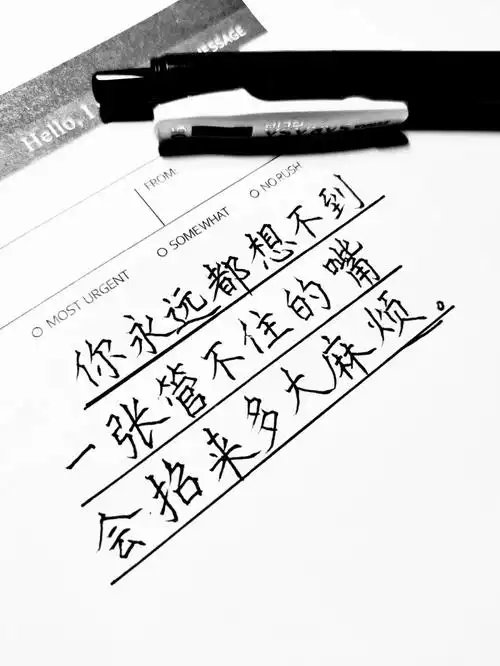 Hello, I
MESSAGE
FROM:
MOST URGENT
SOMEWHAT
NO RUSH
你永远都想不到
一张管不住的嘴
会招来多大麻烦。